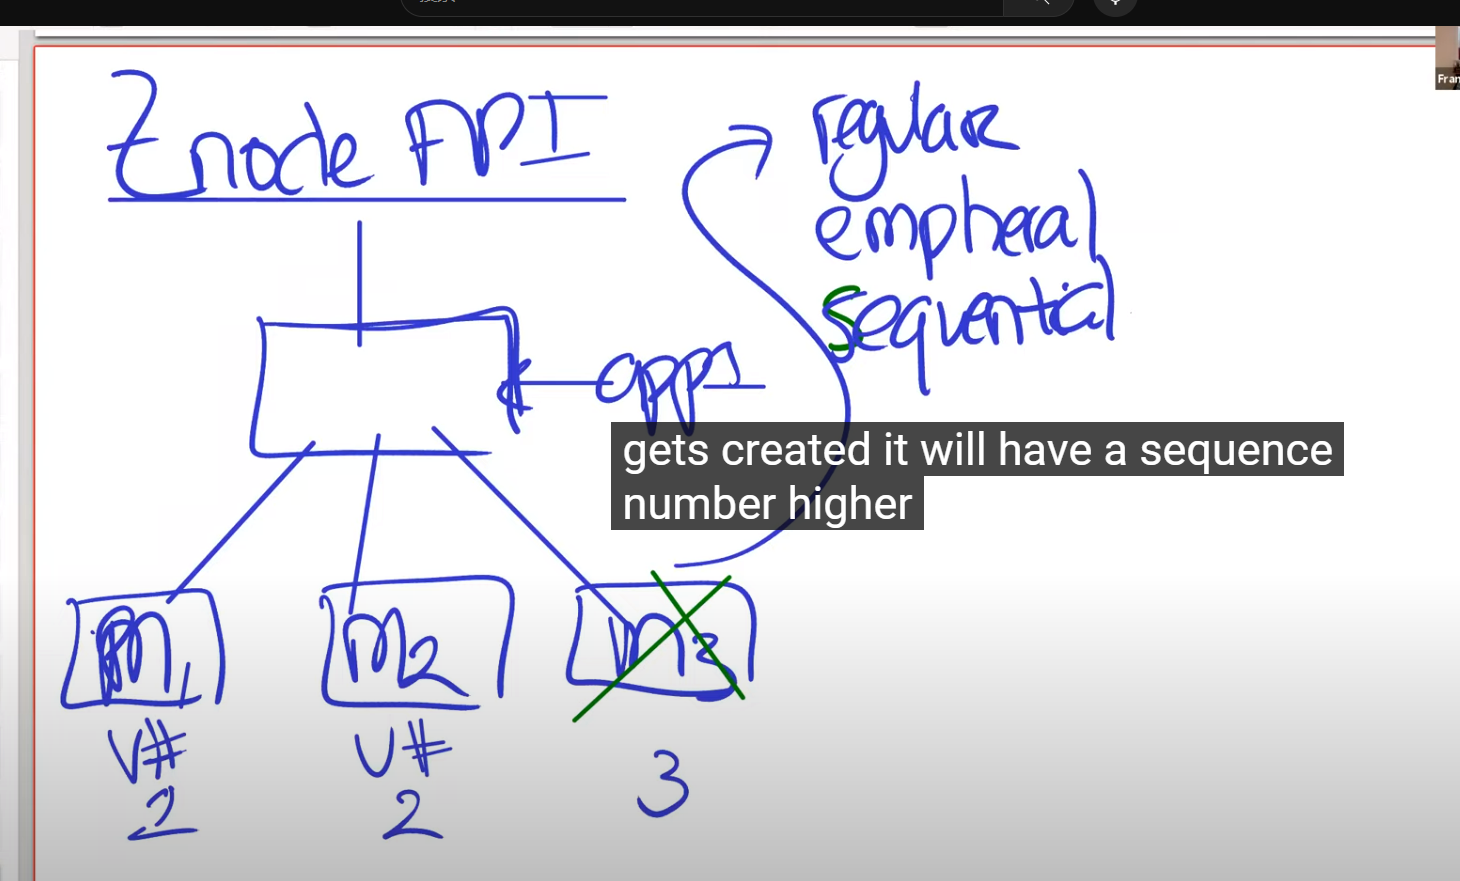 搜索
Znode API
regular
empheral
sequential
app1
gets created it will have a sequence
number higher
M1
M2
M3
V#
V#
3
2
2
Fran